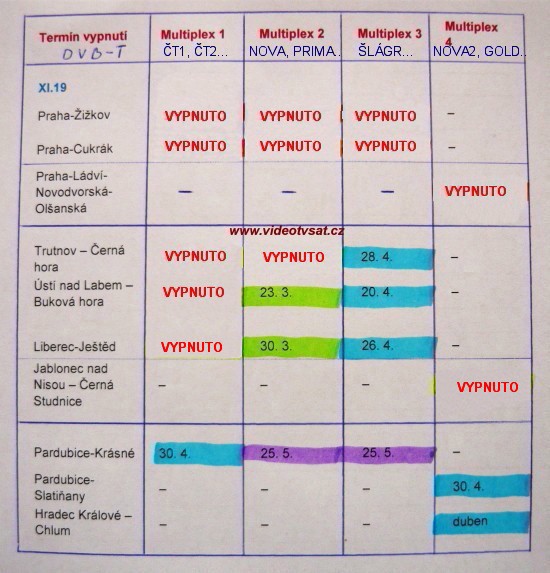 Termín vypnutí Multiplex 1 Multiplex 2 Multiplex 3 Multiplex 4
DVB-T ČT1, ČT2... NOVA, PRIMA.. ŠLÁGR... NOVA2, GOLD..
XI.19
Praha-Žižkov VYPNUTO VYPNUTO VYPNUTO –
Praha-Cukrák VYPNUTO VYPNUTO VYPNUTO –
Praha-Ládví-
Novodvorská- – – – VYPNUTO
Olšanská
www.videotvsat.cz
Trutnov – Černá VYPNUTO VYPNUTO 28. 4. –
hora
Ústí nad Labem – VYPNUTO 23. 3. 20. 4. –
Buková hora
Liberec-Ještěd VYPNUTO 30. 3. 26. 4. –
Jablonec nad
Nisou – Černá – – – VYPNUTO
Studnice
Pardubice-Krásné 30. 4. 25. 5. 25. 5. –
Pardubice- – – – 30. 4.
Slatiňany
Hradec Králové – – – – duben
Chlum